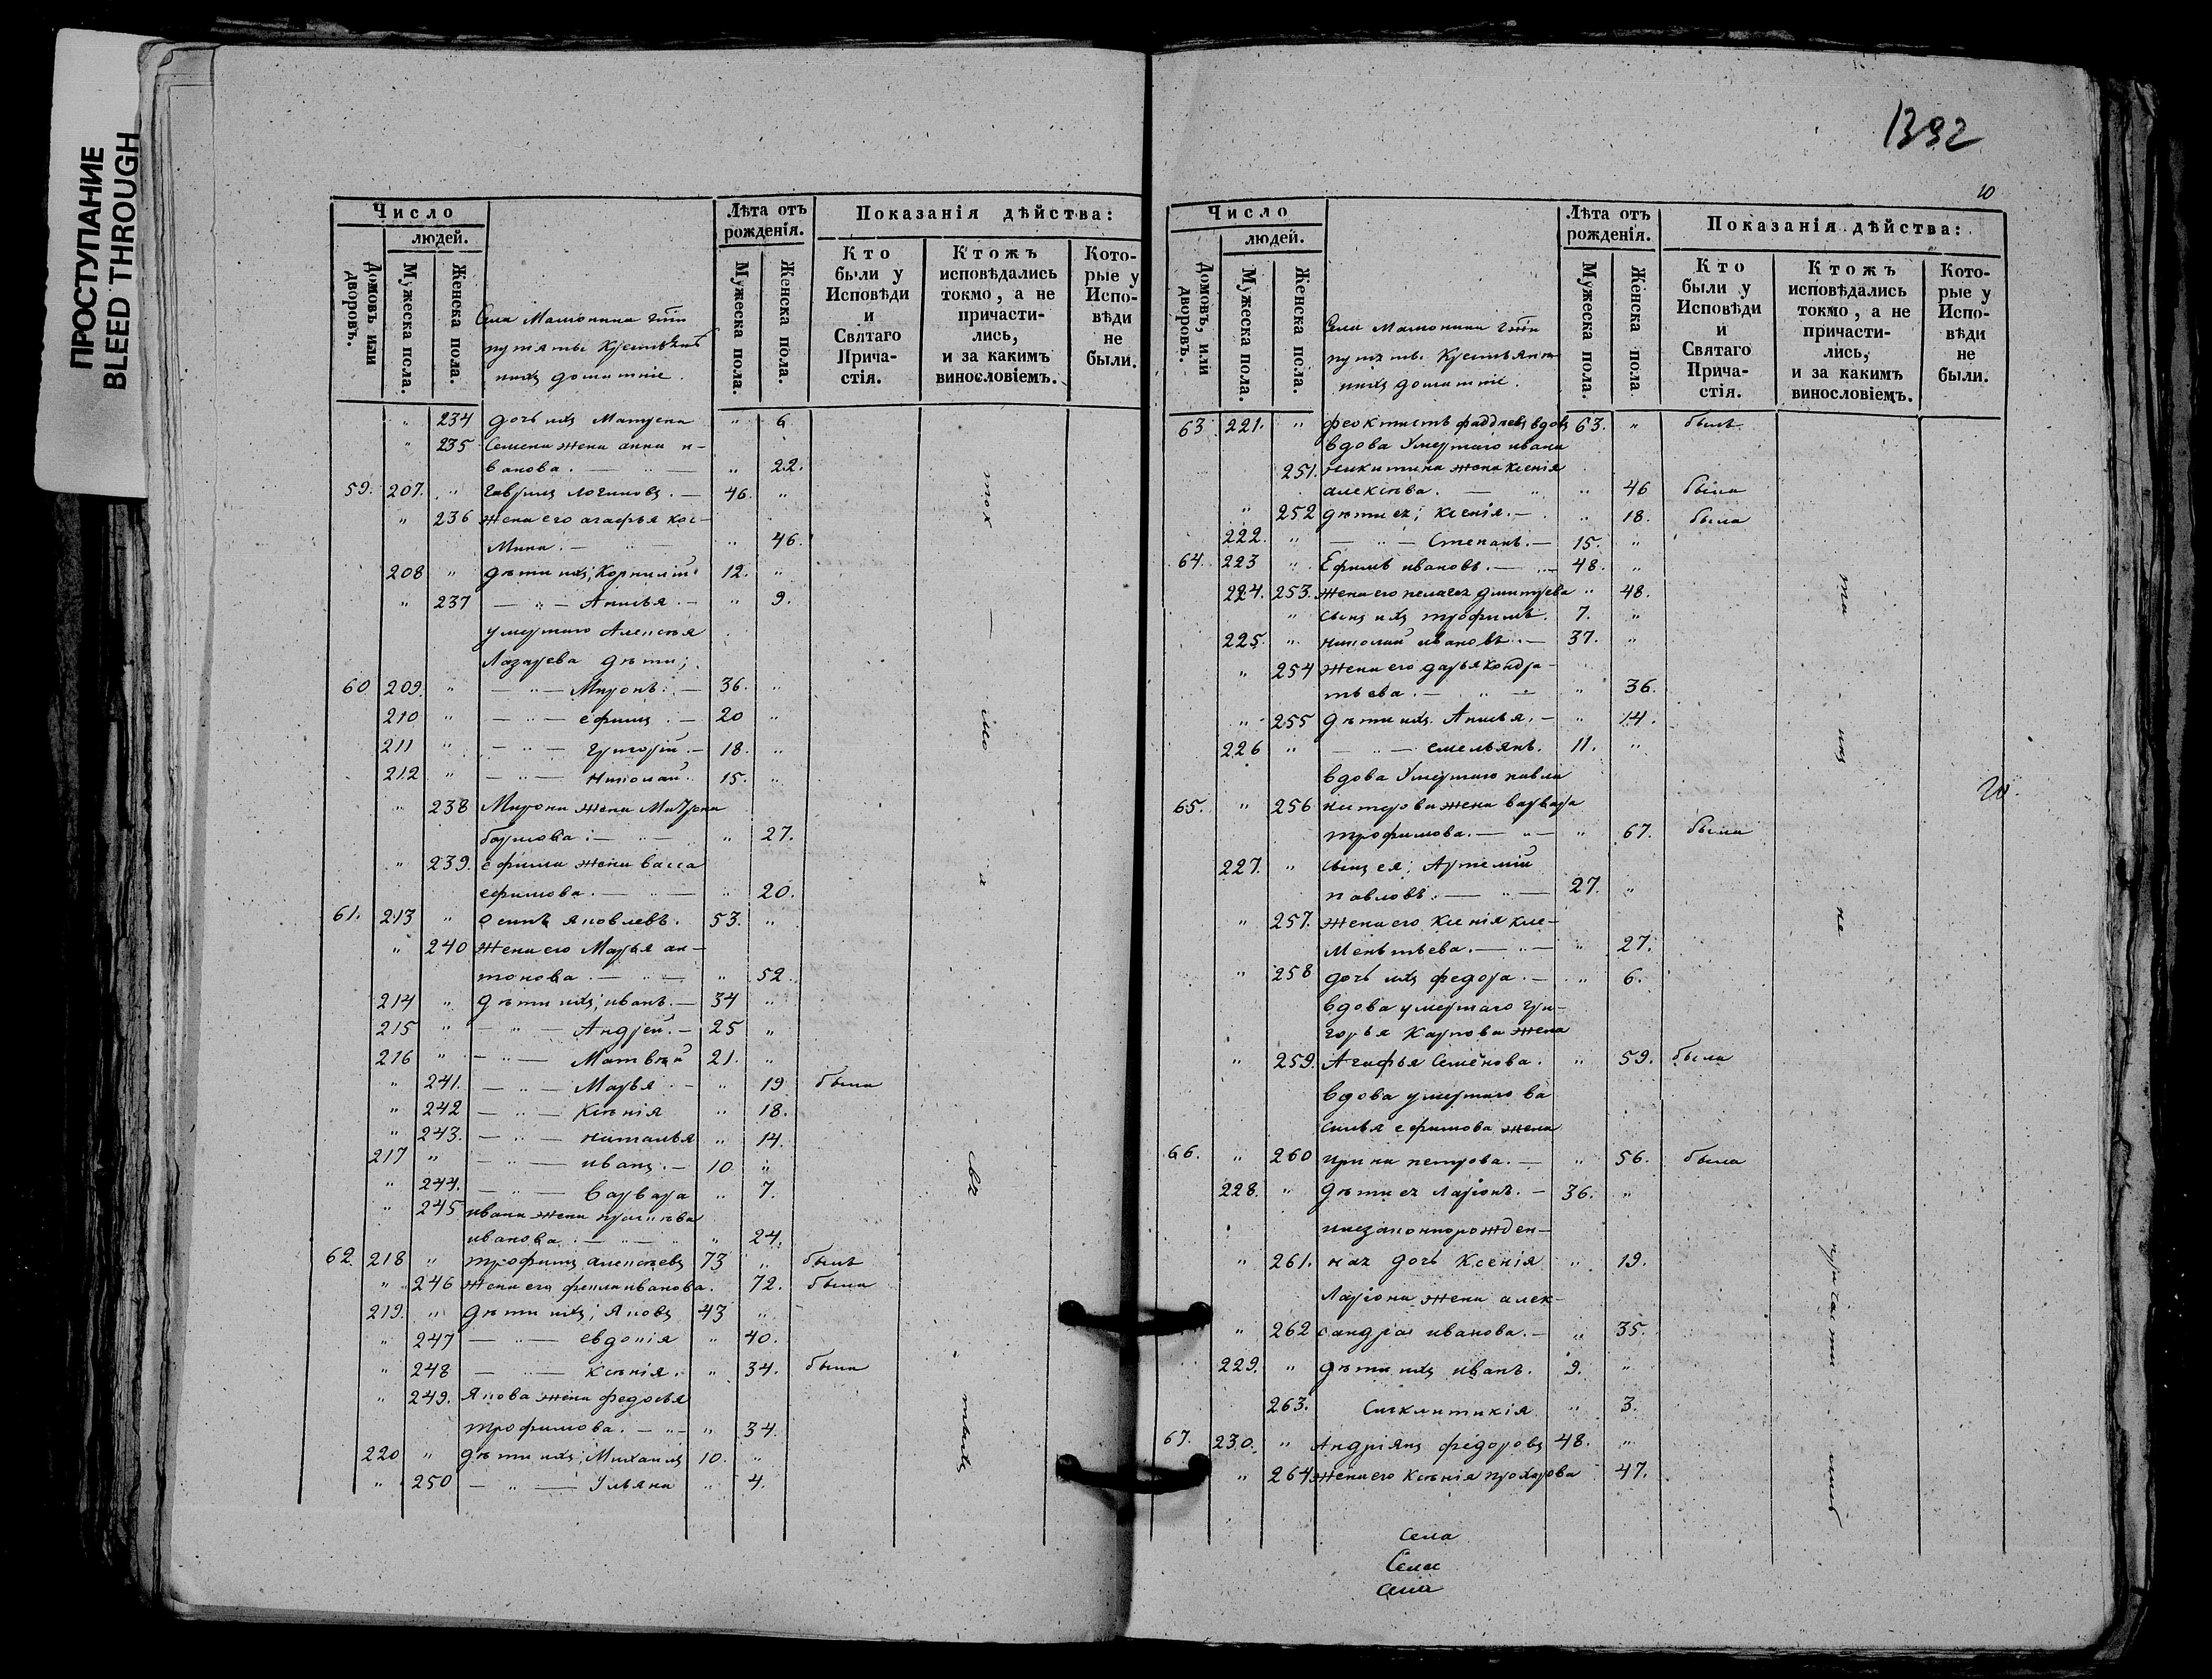 ПРОСТУПАНИЕ
BLEED THROUGH
Число
людей.
Домовъ или дворовъ.
Мужеска пола.
Женска пола.
Села Мамонина
Крестьянъ
Лѣта отъ рожденія.
Мужеска пола.
Женска пола.
Показанія дѣйства:
Кто были у Исповѣди и Святаго Причастія.
Ктожъ исповѣдались токмо, а не причастились, и за какимъ винословіемъ.
Которые у Исповѣди не были.
" 234 дочь ихъ Матрена " 6
" 235 Семена жена анна и-
ванова. — " — " 22.
59. 207. " Гаврилъ логиновъ. — 46. "
" 236 жена его агафья кос-
мина. — " — " 46.
208 " дѣти ихъ; Корнилій 12. "
" 237 — " — Анисья. — " 9.
умершаго Алексѣя
Лазарева дѣти;
60 209. " — " — Миронъ. — 36. "
210 " — " — ефимъ. — 20 "
211 " — " — Григорій. — 18. "
212 " — " — николай. 15. "
" 238 Мирона жена Матрона
" 27.
" 239. ефима жена васса
ефимова. — " — " 20.
61. 213 " осипъ яковлевъ. 53. "
" 240 жена его Марья ан-
тонова. — " — " 52.
214 " дѣти ихъ; иванъ. — 34 "
215 " — " — Андрей. — 25 "
216 " — " — Матвѣй 21. "
" 241. — " — Марья. — " 19 была
" 242 — " — Ксѣнія " 18.
" 243. — " — наталья " 14.
217 " — " — иванъ. — 10 "
" 244. — " — варвара " 7.
" 245 ивана жена
иванова. — " — " 24.
62. 218 " трофимъ алексѣевъ 73 " былъ
" 246 жена его фекла иванова. 72. была
219. " дѣти ихъ; Яковъ 43 "
" 247 — " — евдокія " 40.
" 248 — " — Ксѣнія. " 34. была
" 249. Якова жена федосья
трофимова. — " — " 34.
220 " дѣти ихъ; Михаилъ 10. "
" 250 — " — Ульяна " 4.
1392
10
Число
людей.
Домовъ, или дворовъ.
Мужеска пола.
Женска пола.
Села Мамонина
Крестьянъ
Лѣта отъ рожденія.
Мужеска пола.
Женска пола
Показанія дѣйства:
Кто были у Исповѣди и Святаго Причастія.
Ктожъ исповѣдались токмо, а не причастились, и за какимъ винословіемъ.
Которые у Исповѣди не были.
63 221. " феоктистъ фаддѣевъ вдовъ 63. " былъ
вдова Умершаго ивана
251. никитина жена ксенія
алексѣева. — " " 46 была
" 252 дѣти ея; Ксенія. — " 18. была
222. " — " — Степанъ. — 15. "
64. 223 " Ефимъ ивановъ. — 48. "
224. 253. жена его пелагея дмитрева " 48.
" сынъ ихъ трофимъ. 7. "
225. " николай ивановъ. — 37. "
" 254 жена его дарья кондра-
тьева. — " — " 36.
" 255 дѣти ихъ. Анисья. — " 14.
226 " — " — емельянъ. 11. "
вдова Умершаго павла
65. " 256 жена варвара
трофимова. — " — " 67. была
227. " сынъ ея; Артемій
павловъ. — " — 27. "
" 257. жена его Ксенія кле-
ментьева. — " — " 27.
" 258 дочь ихъ федора. — " 6.
вдова умершаго гри-
горья Карпова жена
" 259. Агафья Семёнова. " 59. была
вдова умершаго ва
силья ефимова жена
66. " 260 ирина петрова. — " 56. была
228. " дѣти ея Ларіонъ. — 36. "
незаконнорожден-
" 261. ная дочь Ксенія " 19.
Ларіона жена алек-
" 262 сандра иванова. — " 35.
229. " дѣти ихъ иванъ. 9. "
263. Сигклитикія " 3.
67. 230. " Андріянъ федоровъ 48. "
" 264 жена его Ксѣнія прохорова 47.
Села
Села
Села